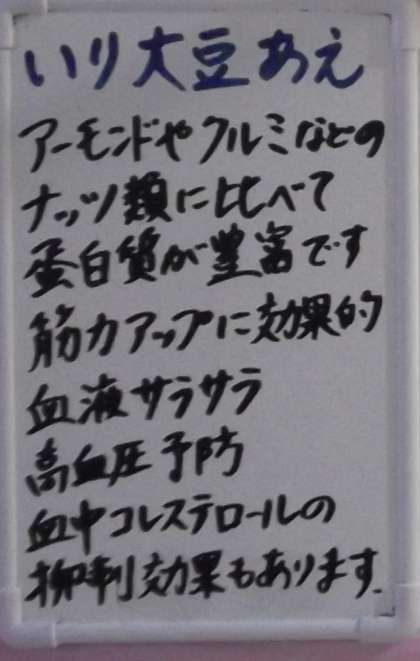 いり大豆あえ
アーモンドやクルミなどの
ナッツ類に比べて
蛋白質が豊富です
筋力アップに効果的
血液サラサラ
高血圧予防
血中コレステロールの
抑制効果もあります.